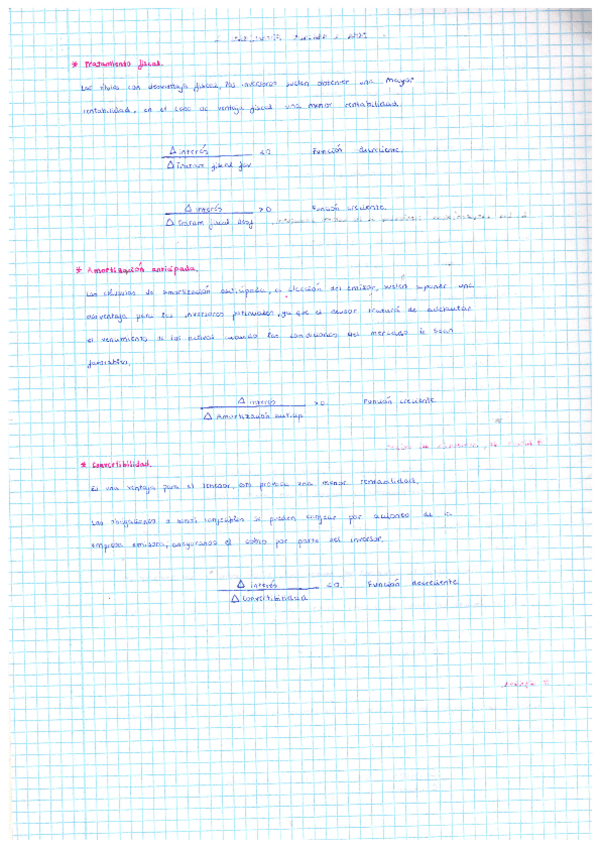 * Tratamiento fiscal.
Los títulos con desventaja fiscal, los inversores suelen obtener una mayor
rentabilidad, en el caso de ventaja fiscal una menor rentabilidad
Δ interés <0 Función decreciente
Δ tratam fiscal fav
Δ interés >0 Función creciente
Δ tratam fiscal desf
* Amortización anticipada.
Las cláusulas de amortización anticipada, a elección del emisor, suelen suponer una
desventaja para los inversores potenciales, ya que el deudor tratará de adelantar
el vencimiento de los activos cuando las condiciones del mercado le sean
favorables.
Δ interés >0 Función creciente
Δ Amortización anticip
* Convertibilidad.
Es una ventaja para el tenedor, esto provoca una menor rentabilidad.
Las obligaciones o bonos convertibles se pueden canjear por acciones de la
empresa emisora, asegurando el cobro por parte del inversor.
Δ interés <0 Función decreciente
Δ Convertibilidad